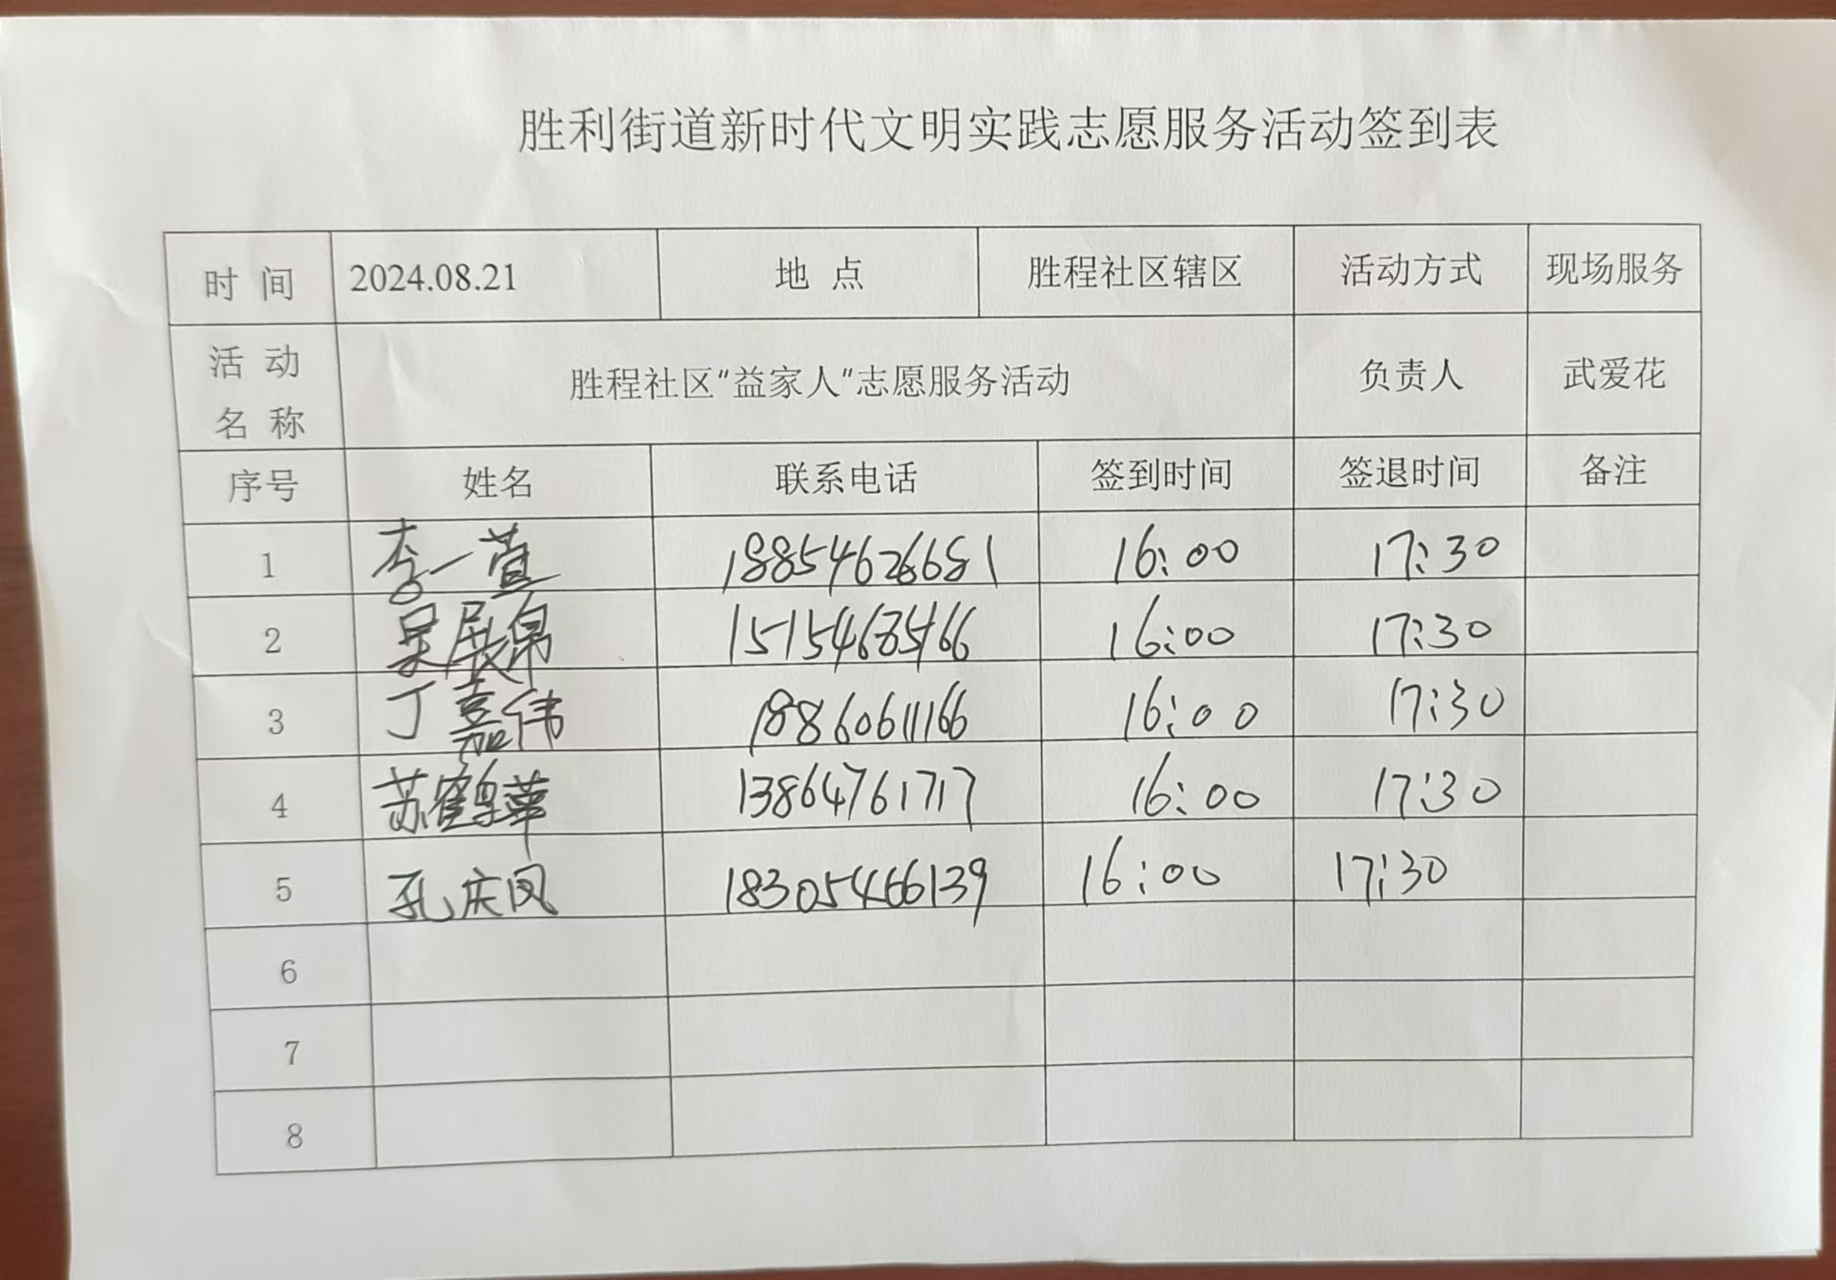 胜利街道新时代文明实践志愿服务活动签到表
时 间 2024.08.21 地 点 胜程社区辖区 活动方式 现场服务
活 动 名 称 胜程社区“益家人”志愿服务活动 负责人 武爱花
序号 姓名 联系电话 签到时间 签退时间 备注
1 李一萱 18854626681 16:00 17:30
2 吴展帛 15154635466 16:00 17:30
3 丁嘉伟 18860611166 16:00 17:30
4 苏鹤華 13864761717 16:00 17:30
5 孔庆凤 18305466139 16:00 17:30
6
7
8